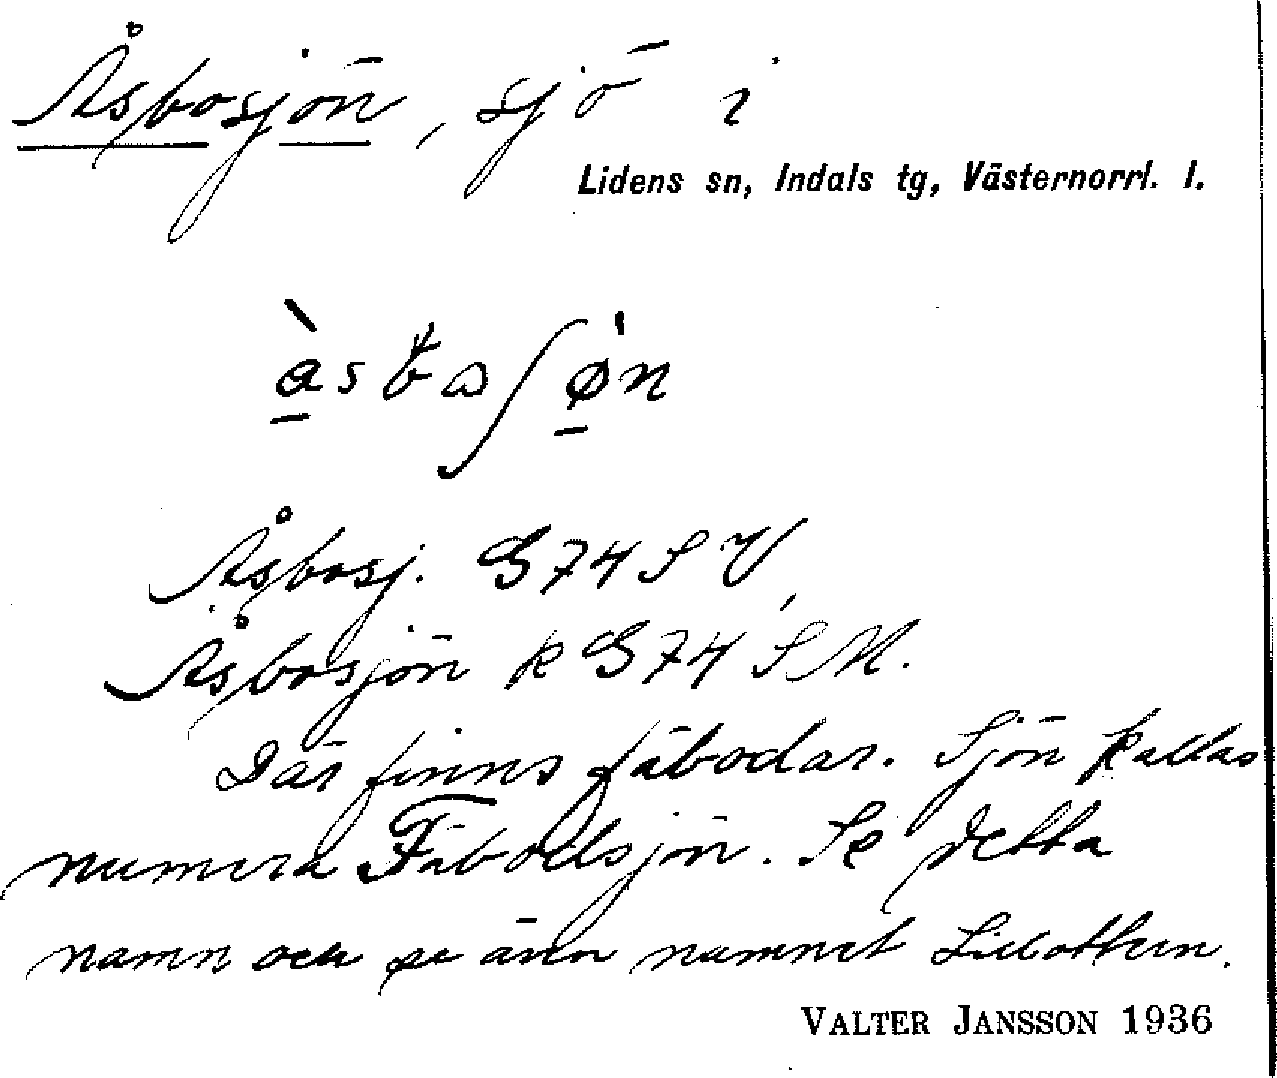 Åsbosjön, sjö i
Lidens sn, Indals tg, Västernorrl. l.
Åsbosj. G74SV,
Åsbosjön k G74 SM.
Där finns fäbodar. Sjön kallas
numera Fäbodsjön. Se detta
namn och se även namnet Lillottern.
VALTER JANSSON 1936